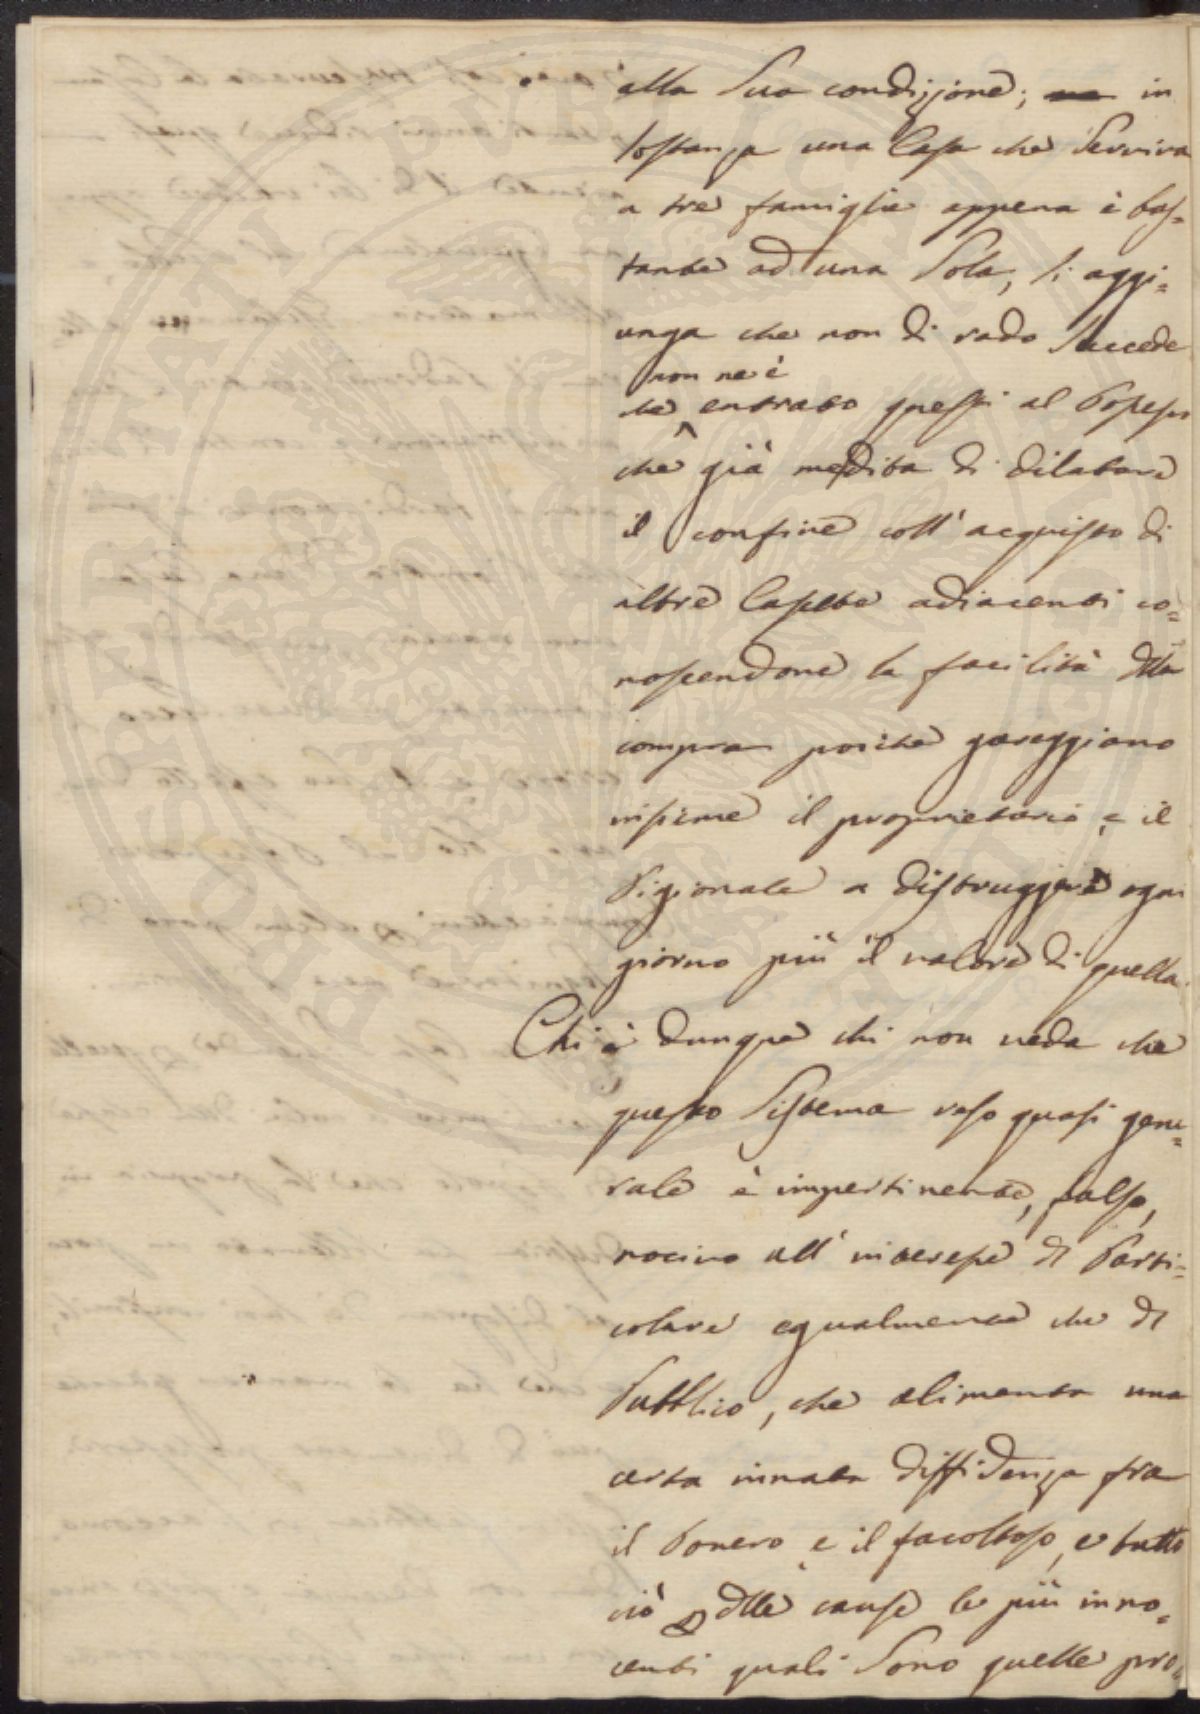 alla sua condizione; in
sostanza una Casa che serviva
a tre famiglie appena è bas=
tante ad una sola, si aggi=
unga che non di rado succede
non ne è
che entrato questi al possesso
che già medita di dilatare
il confine coll' acquisto di
altre Casette adiacenti co=
noscendone la facilità dlla
compra poiche gareggiano
insieme il proprietario e il
Pigionale a distruggere ogni
giorno più il valore di quella.
Chi è dunque chi non veda che
questo sistema reso quasi gene=
rale è impertinente, falso,
nocivo all' interesse dl Parti=
colare egualmente che dl
Pubblico, che alimenta una
certa innata diffidenza fra
il Povero e il facoltoso, e tutto
ciò p dlle cause le più inno=
centi quali sono quelle pro=
PROSPERITATI PVBLICAE